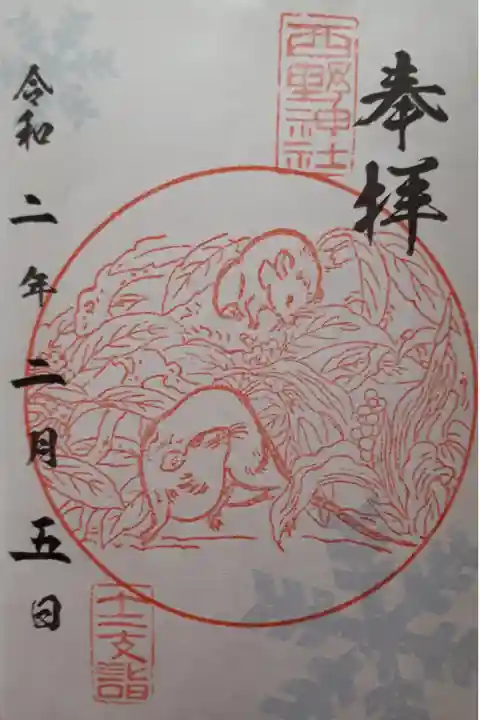 奉拝
西野神社
令和二年二月五日
十二支詣